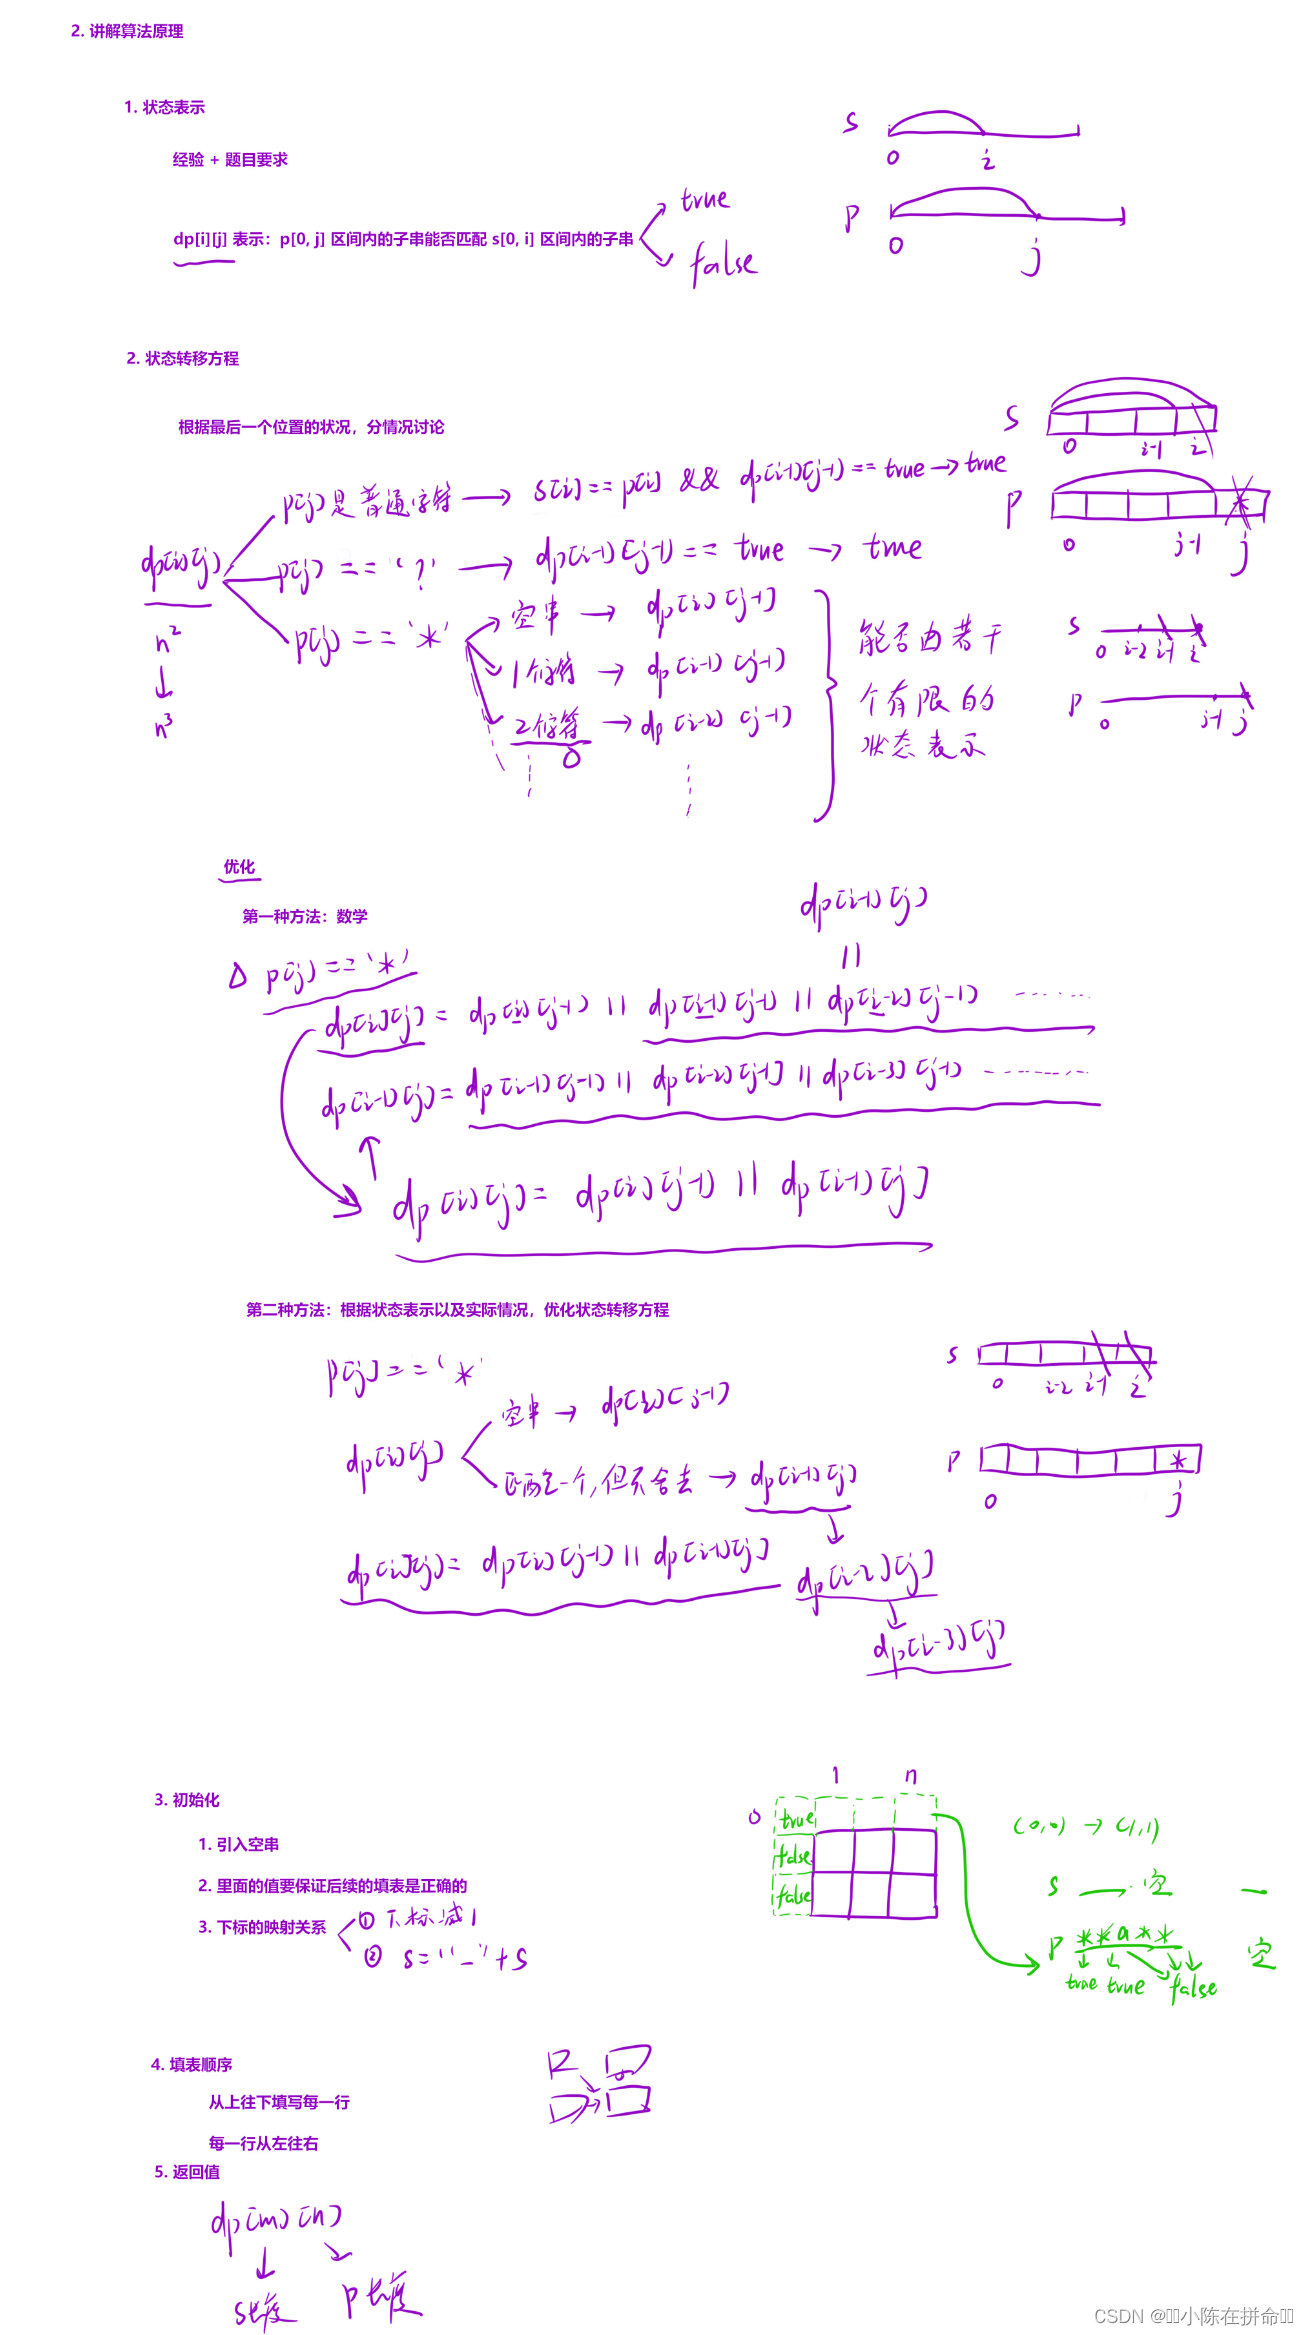 2. 讲解算法原理
1. 状态表示
经验 + 题目要求
dp[i][j] 表示：p[0, j] 区间内的子串能否匹配 s[0, i] 区间内的子串
true
false
s
0 i
p
0 j
2. 状态转移方程
根据最后一个位置的状况，分情况讨论
dp[i][j]
n²
n³
p[j]是普通字符 → s[i] == p[j] && dp[i-1][j-1] == true → true
p[j] == '?' → dp[i-1][j-1] == true → true
p[j] == '*'
空串 → dp[i][j-1]
1个字符 → dp[i-1][j-1]
2个字符 → dp[i-2][j-1]
能否由若干
个有限的
状态表示
s
0 i-1 i
p *
0 j-1 j
s
0 i-2 i-1 i
p
0 j-1 j
优化
第一种方法：数学
dp[i-1][j]
||
Δ p[j] == '*'
dp[i][j] = dp[i][j-1] || dp[i-1][j-1] || dp[i-2][j-1] ......
dp[i-1][j] = dp[i-1][j-1] || dp[i-2][j-1] || dp[i-3][j-1] ......
dp[i][j] = dp[i][j-1] || dp[i-1][j]
第二种方法：根据状态表示以及实际情况，优化状态转移方程
p[j] == '*'
dp[i][j]
空串 → dp[i][j-1]
匹配一个,但不舍去 → dp[i-1][j]
dp[i][j] = dp[i][j-1] || dp[i-1][j]
dp[i-2][j]
dp[i-3][j]
s
0 i-2 i-1 i
p *
0 j
3. 初始化
1. 引入空串
2. 里面的值要保证后续的填表是正确的
3. 下标的映射关系
① 下标减1
② s = "_" + s
1 n
0 true
false
false
(0,0) → (1,1)
s 空
p **a** 空
true true false
4. 填表顺序
从上往下填写每一行
每一行从左往右
5. 返回值
dp[m][n]
s长度 p长度
CSDN @小陈在拼命